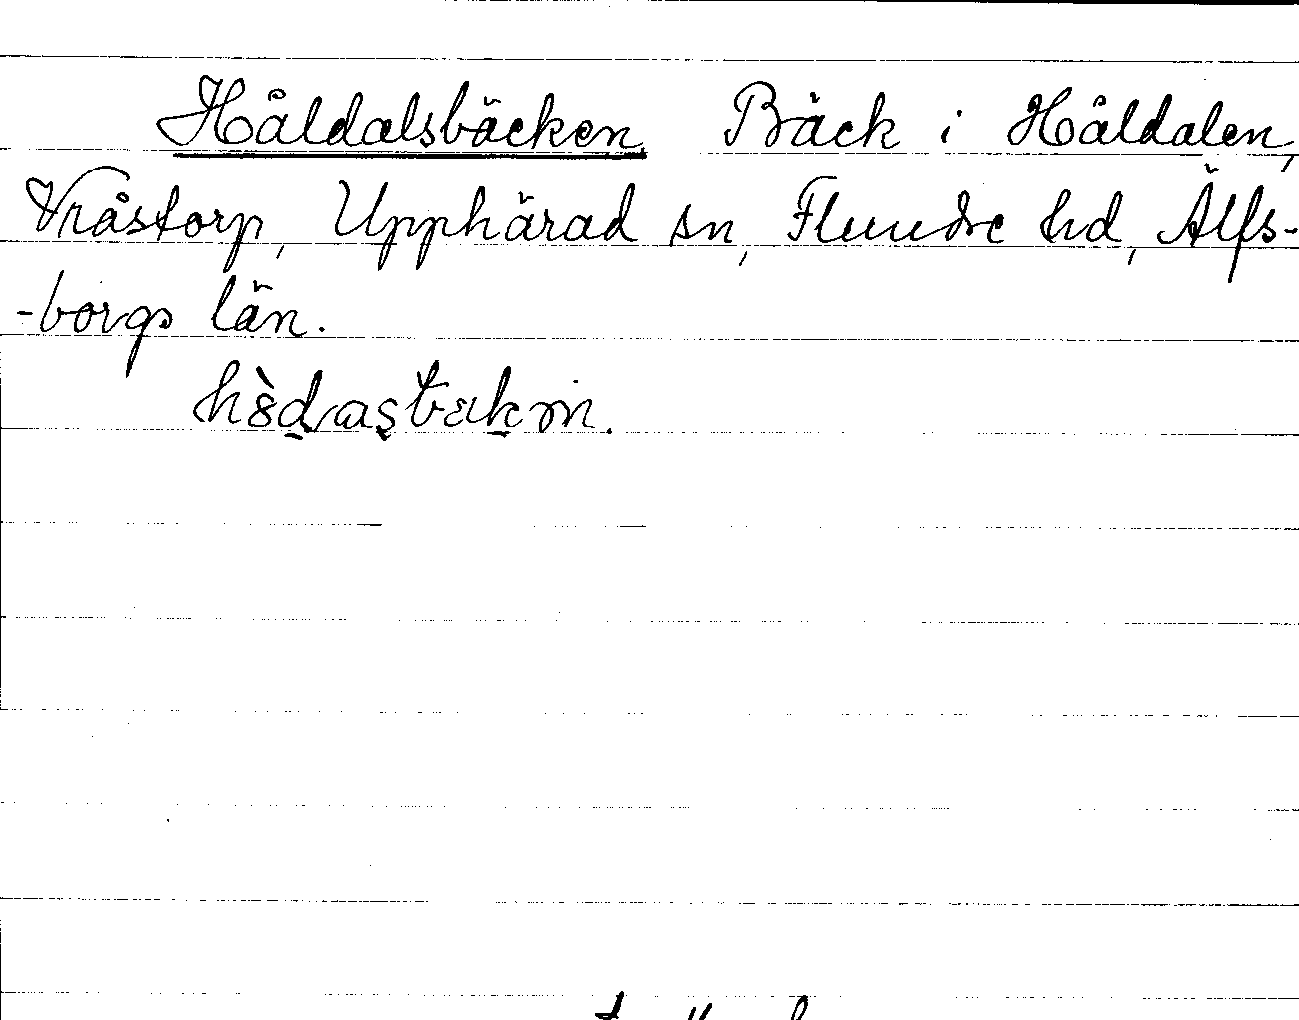 Håldalsbäcken, Bäck i Håldalen,
Vråstorp, Upphärad sn, Flundre hd, Älfs-
-borgs län.